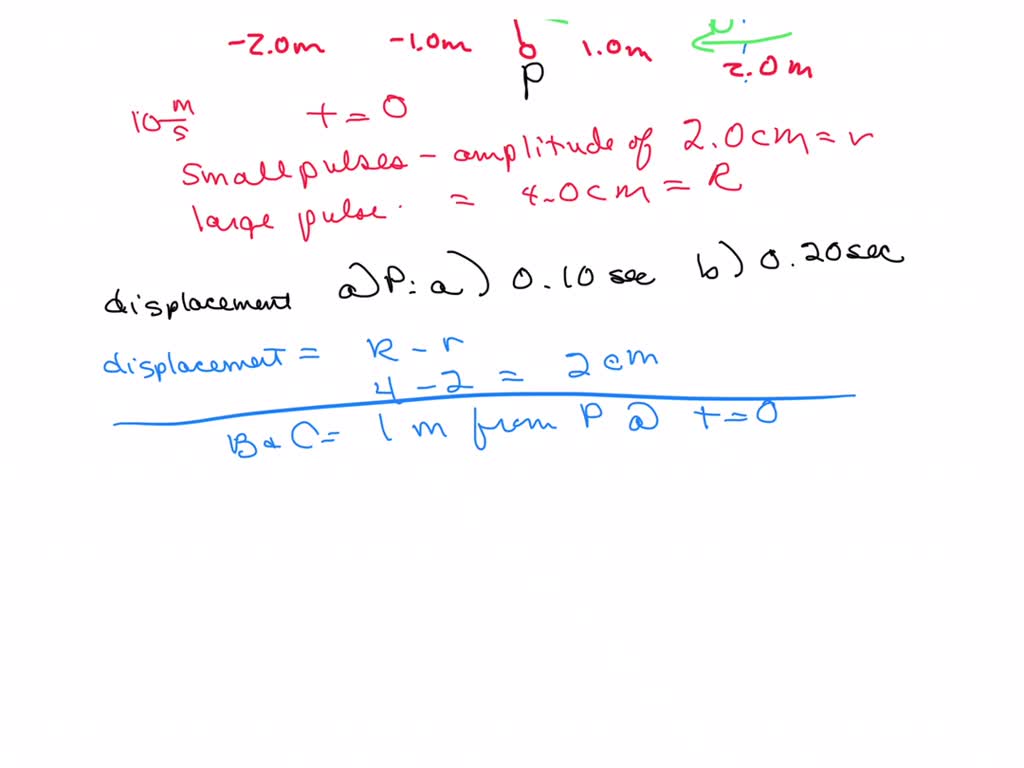 -2.0m -1.0m 1.0m
2.0m
P
10 m/s t = 0
Small pulses - amplitude of 2.0cm = r
large pulse. = 4.0cm = R
displacement a) P: a) 0.10 sec b) 0.20sec
displacement = R - r
4 - 2 = 2 cm
B & C = 1 m from P @ t = 0